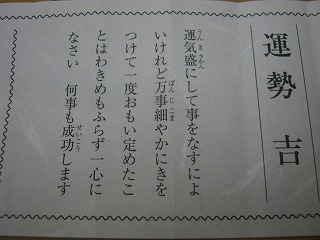 運勢 吉
運気盛にして事をなすによ
いけれど万事細やかにきを
つけて一度おもい定めたこ
とはわきめもふらず一心に
なさい 何事も成功します